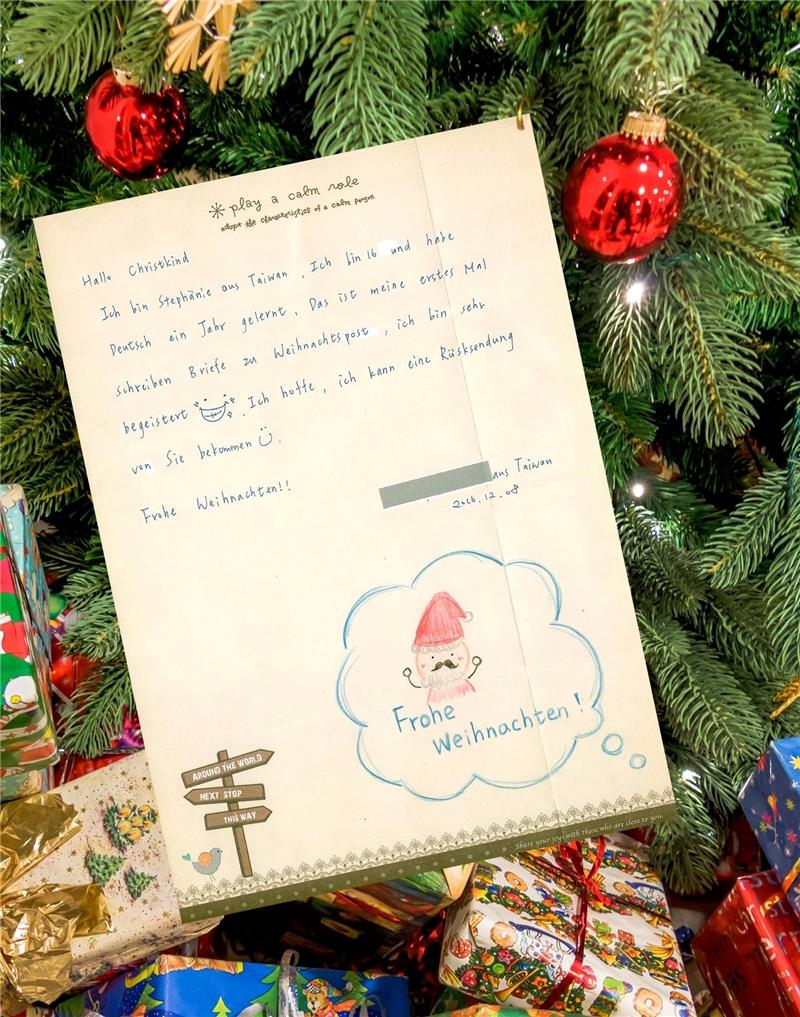 play a calm role
adopt the characteristics of a calm person
Hallo Christkind
Ich bin Stephänie aus Taiwan . Ich bin 16 und habe
Deutsch ein Jahr gelernt . Das ist meine erstes Mal
schreiben Briefe zu Weihnachtspost , ich bin sehr
begeistert . Ich hoffe , ich kann eine Rüsksendung
von Sie bekommen .
Frohe Weihnachten!!
aus Taiwan
2016.12.08
Frohe
Weihnachten!
AROUND THE WORLD
NEXT STOP
THIS WAY
Share your joys with those who are close to you.